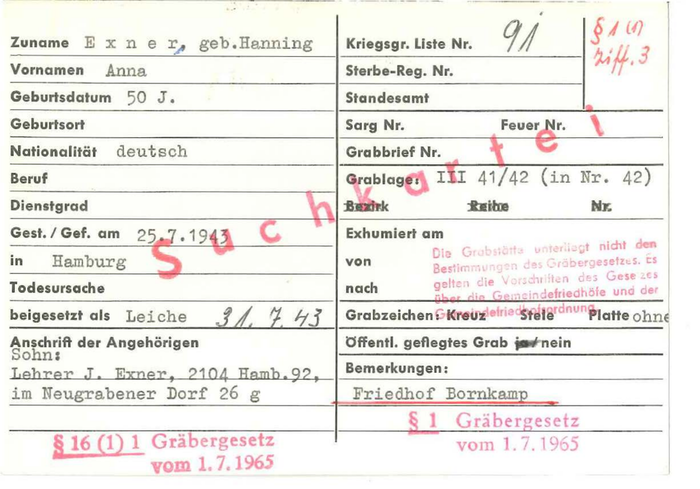 Zuname Exner, geb.Hanning
Vornamen Anna
Geburtsdatum 50 J.
Geburtsort
Nationalität deutsch
Beruf
Dienstgrad
Gest. / Gef. am 25.7.1943
in Hamburg
Todesursache
beigesetzt als Leiche 31.7.43
Anschrift der Angehörigen
Sohn:
Lehrer J. Exner, 2104 Hamb.92,
im Neugrabener Dorf 26 g
§ 16 (1) 1 Gräbergesetz
vom 1.7.1965
Suchkartei
Kriegsgr. Liste Nr. 91
§ 1 (1)
Ziff. 3
Sterbe-Reg. Nr.
Standesamt
Sarg Nr. Feuer Nr.
Grabbrief Nr.
Grablage: III 41/42 (in Nr. 42)
Bezirk Reihe Nr.
Exhumiert am
von
nach
Die Grabstätte unterliegt nicht den
Bestimmungen des Gräbergesetzes. Es
gelten die Vorschriften des Gesetzes
über die Gemeindefriedhöfe und der
Gemeindefriedhofsordnung.
Grabzeichen: Kreuz Stele Platte ohne
Öffentl. gepflegtes Grab ja nein
Bemerkungen:
Friedhof Bornkamp
§ 1 Gräbergesetz
vom 1.7.1965